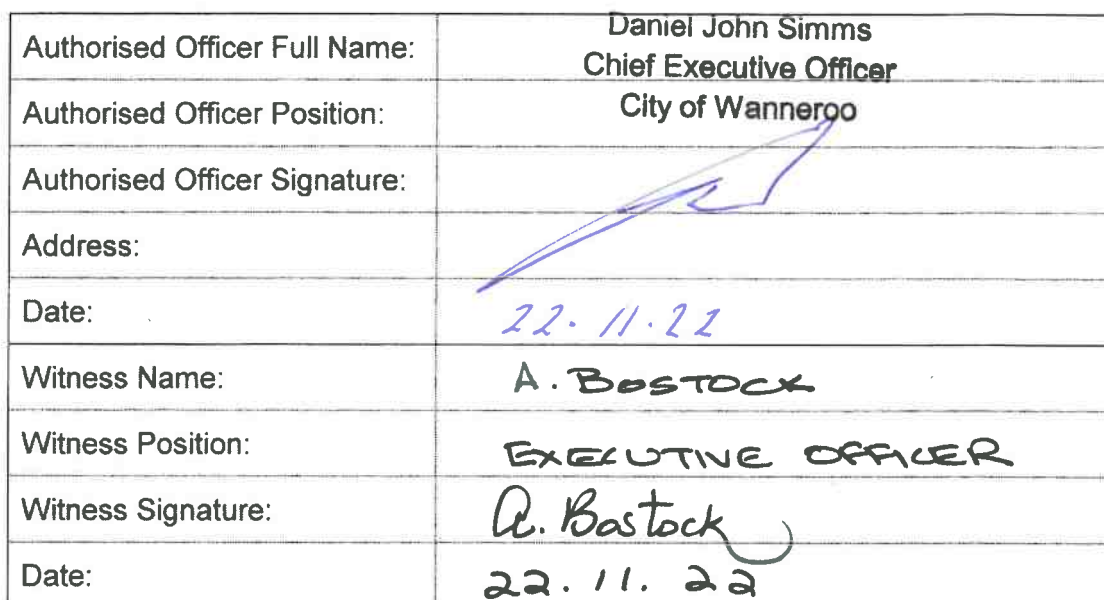 Authorised Officer Full Name: Daniel John Simms
Chief Executive Officer
Authorised Officer Position: City of Wanneroo
Authorised Officer Signature:
Address:
Date: 22.11.22
Witness Name: A. BOSTOCK
Witness Position: EXECUTIVE OFFICER
Witness Signature: A. Bostock
Date: 22.11.22